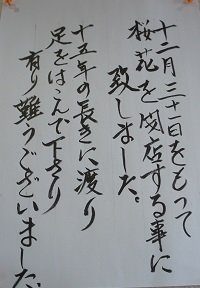 十二月三十一日をもって
桜花を閉店する事に
致しました。
十五年の長きに渡り
足をはこんで下さり
有り難うございました。